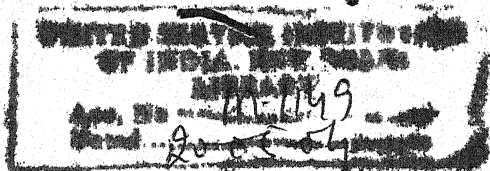 UNITED SERVICE INSTITUTION
OF INDIA, NEW DELHI
LIBRARY
Acc. No M-1149
20 oct 04